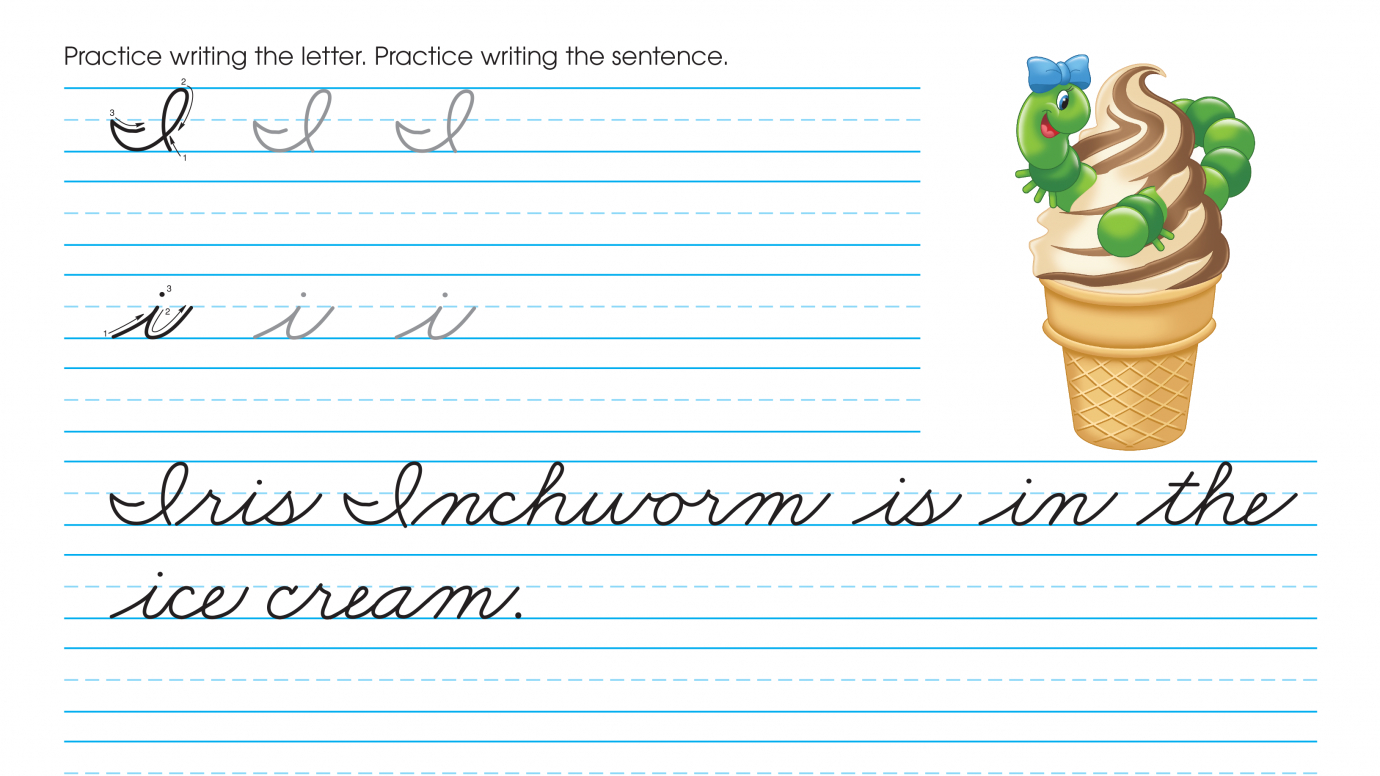 Practice writing the letter. Practice writing the sentence.
2
3
I I I
1
3
i i i
2
1
Iris Inchworm is in the
ice cream.